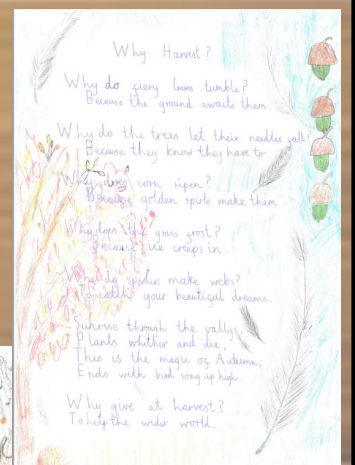 Why Harvest?
Why do fiery leaves tumble?
Because the ground awaits them.
Why do the trees let their needles fall?
Because they know they have to.
Why does corn ripen?
Because golden spirits make them.
Why does the grass frost?
Because ice creeps in.
Why do spiders make webs?
To catch your beautiful dreams.
Sunrise through the vallys,
Plants whither and die,
This is the magic of Autumn,
Ends with bird song up high.
Why give at harvest?
To help the wider world.